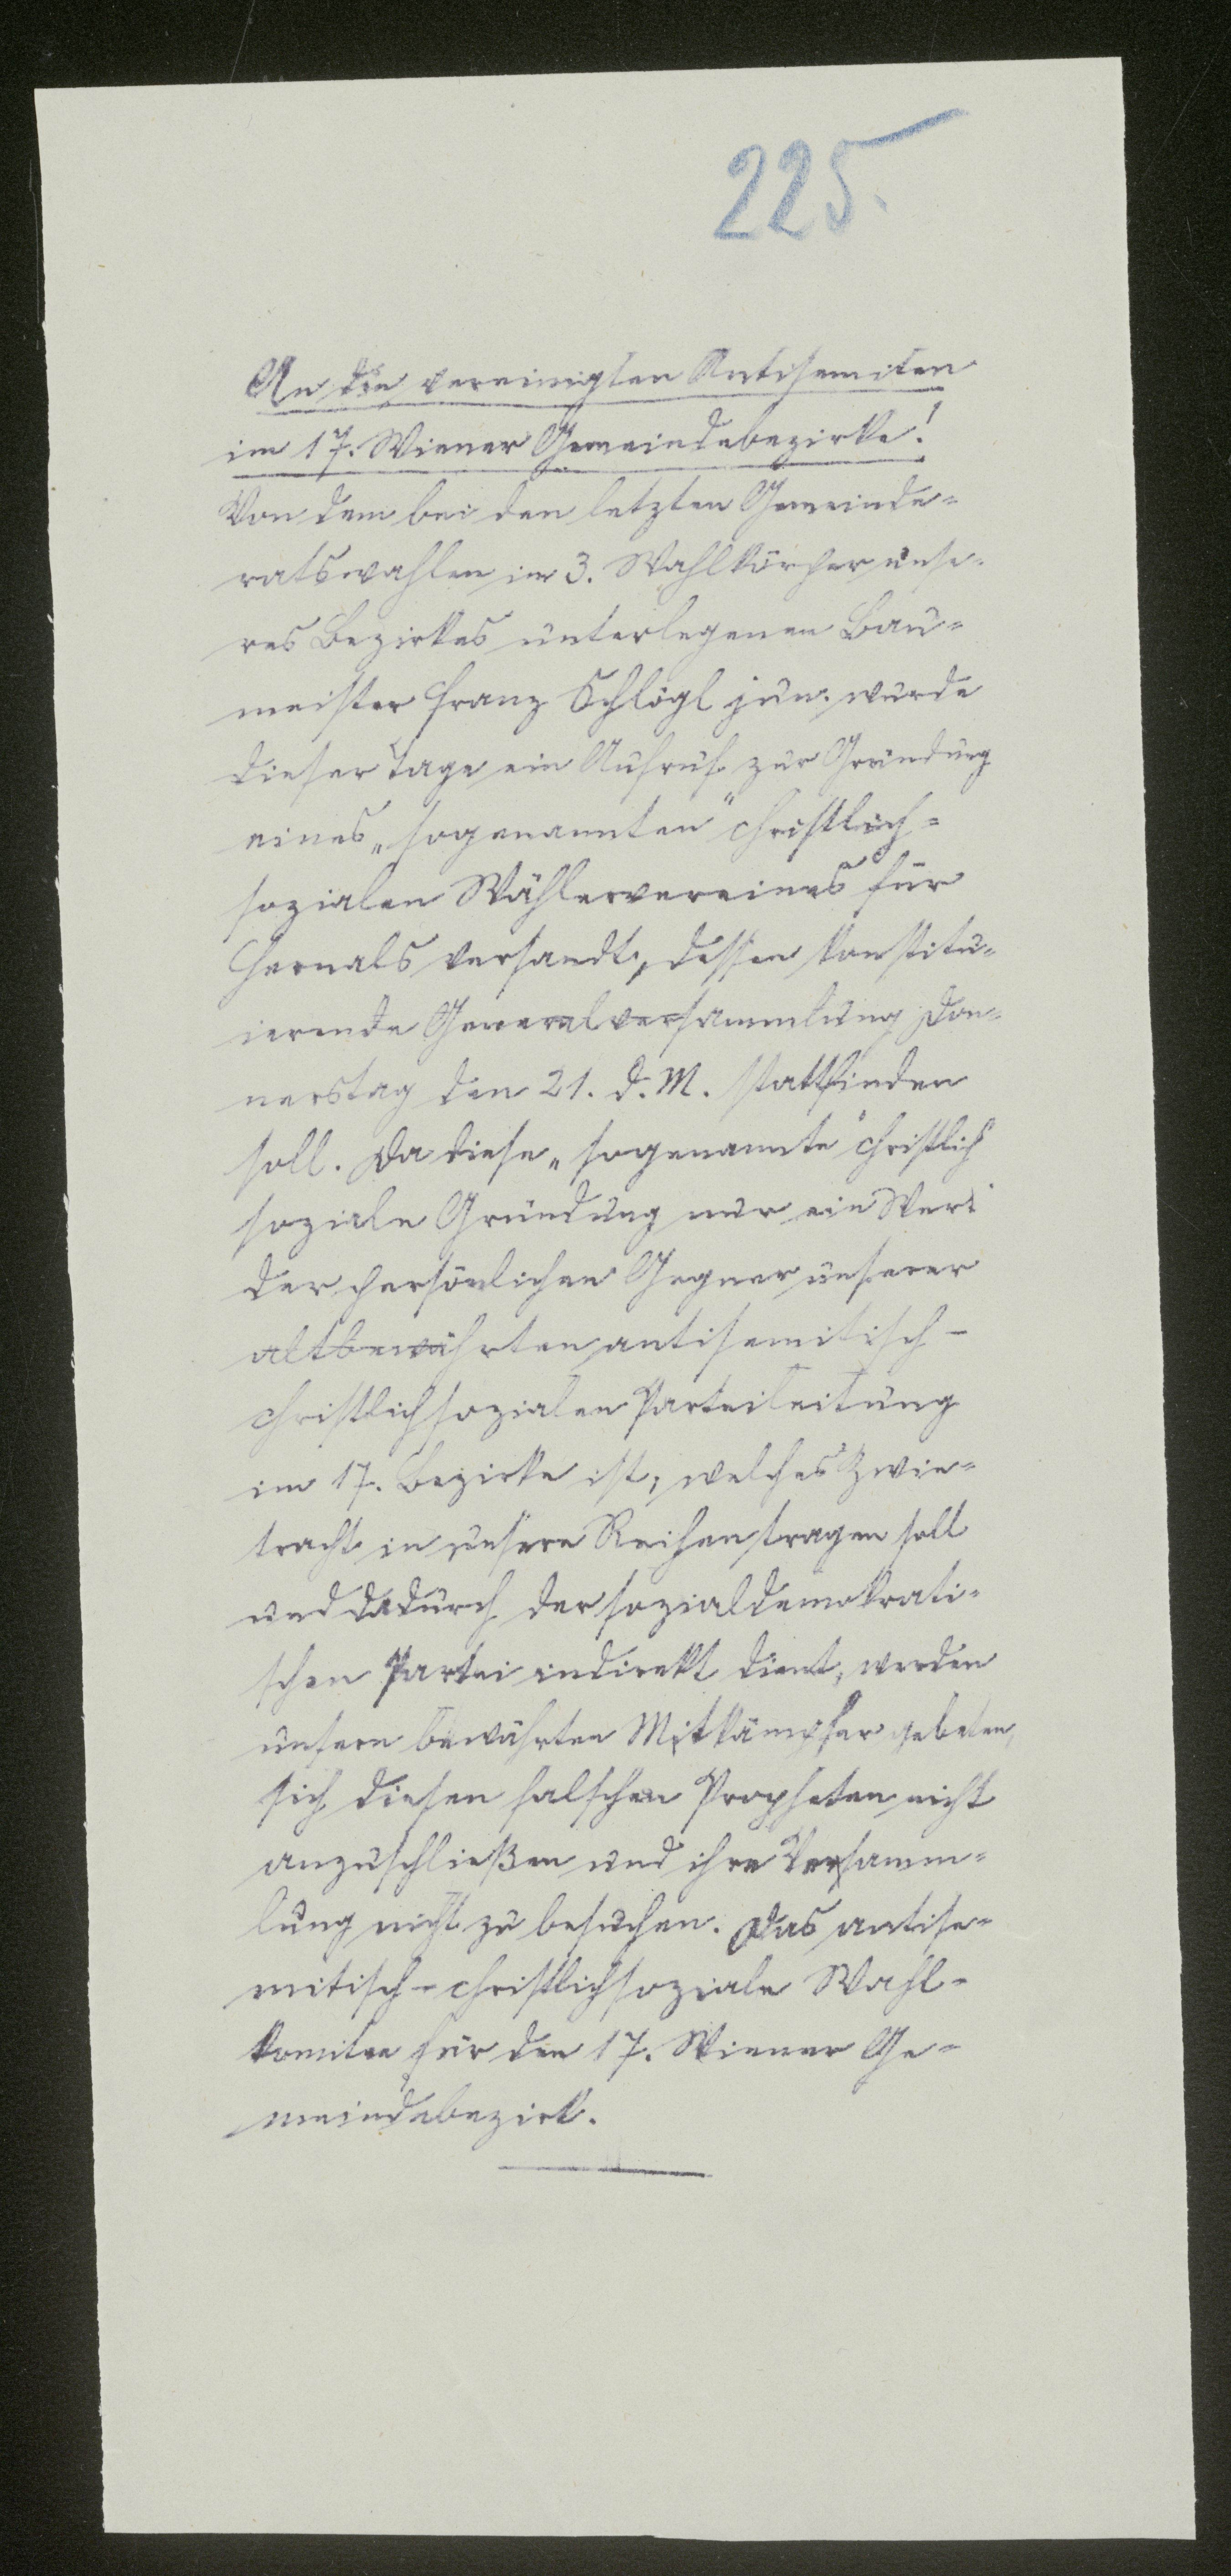 225.
An die vereinigten Antisemiten
im 17. Wiener Gemeindebezirke!
Von dem bei den letzten Gemeinde-
ratswahlen im 3. Wahlkörper unse-
res Bezirkes unterlegenen Bau-
meister Franz Schlögl jun. wurde
dieser Tage ein Aufruf zur Gründung
eines „sogenannten“ christlich-
sozialen Wählervereines für
Hernals versandt, dessen konstitu-
ierende Generalversammlung Don-
nerstag den 21. d. M. stattfinden
soll. Da diese „sogenannte“ christlich
soziale Gründung nur ein Werk
der persönlichen Gegner unserer
altbewährten antisemitisch-
christlichsozialen Parteileitung
im 17. Bezirke ist, welches Zwie-
tracht in unsere Reihen tragen soll
und dadurch der sozialdemokrati-
schen Partei indirekt dient, werden
unsere bewährten Mitkämpfer gebeten,
sich diesen falschen Propheten nicht
anzuschließen und ihre Versamm-
lung nicht zu besuchen. Das antise-
mitisch-christlichsoziale Wahl-
komitee für den 17. Wiener Ge-
meindebezirk.